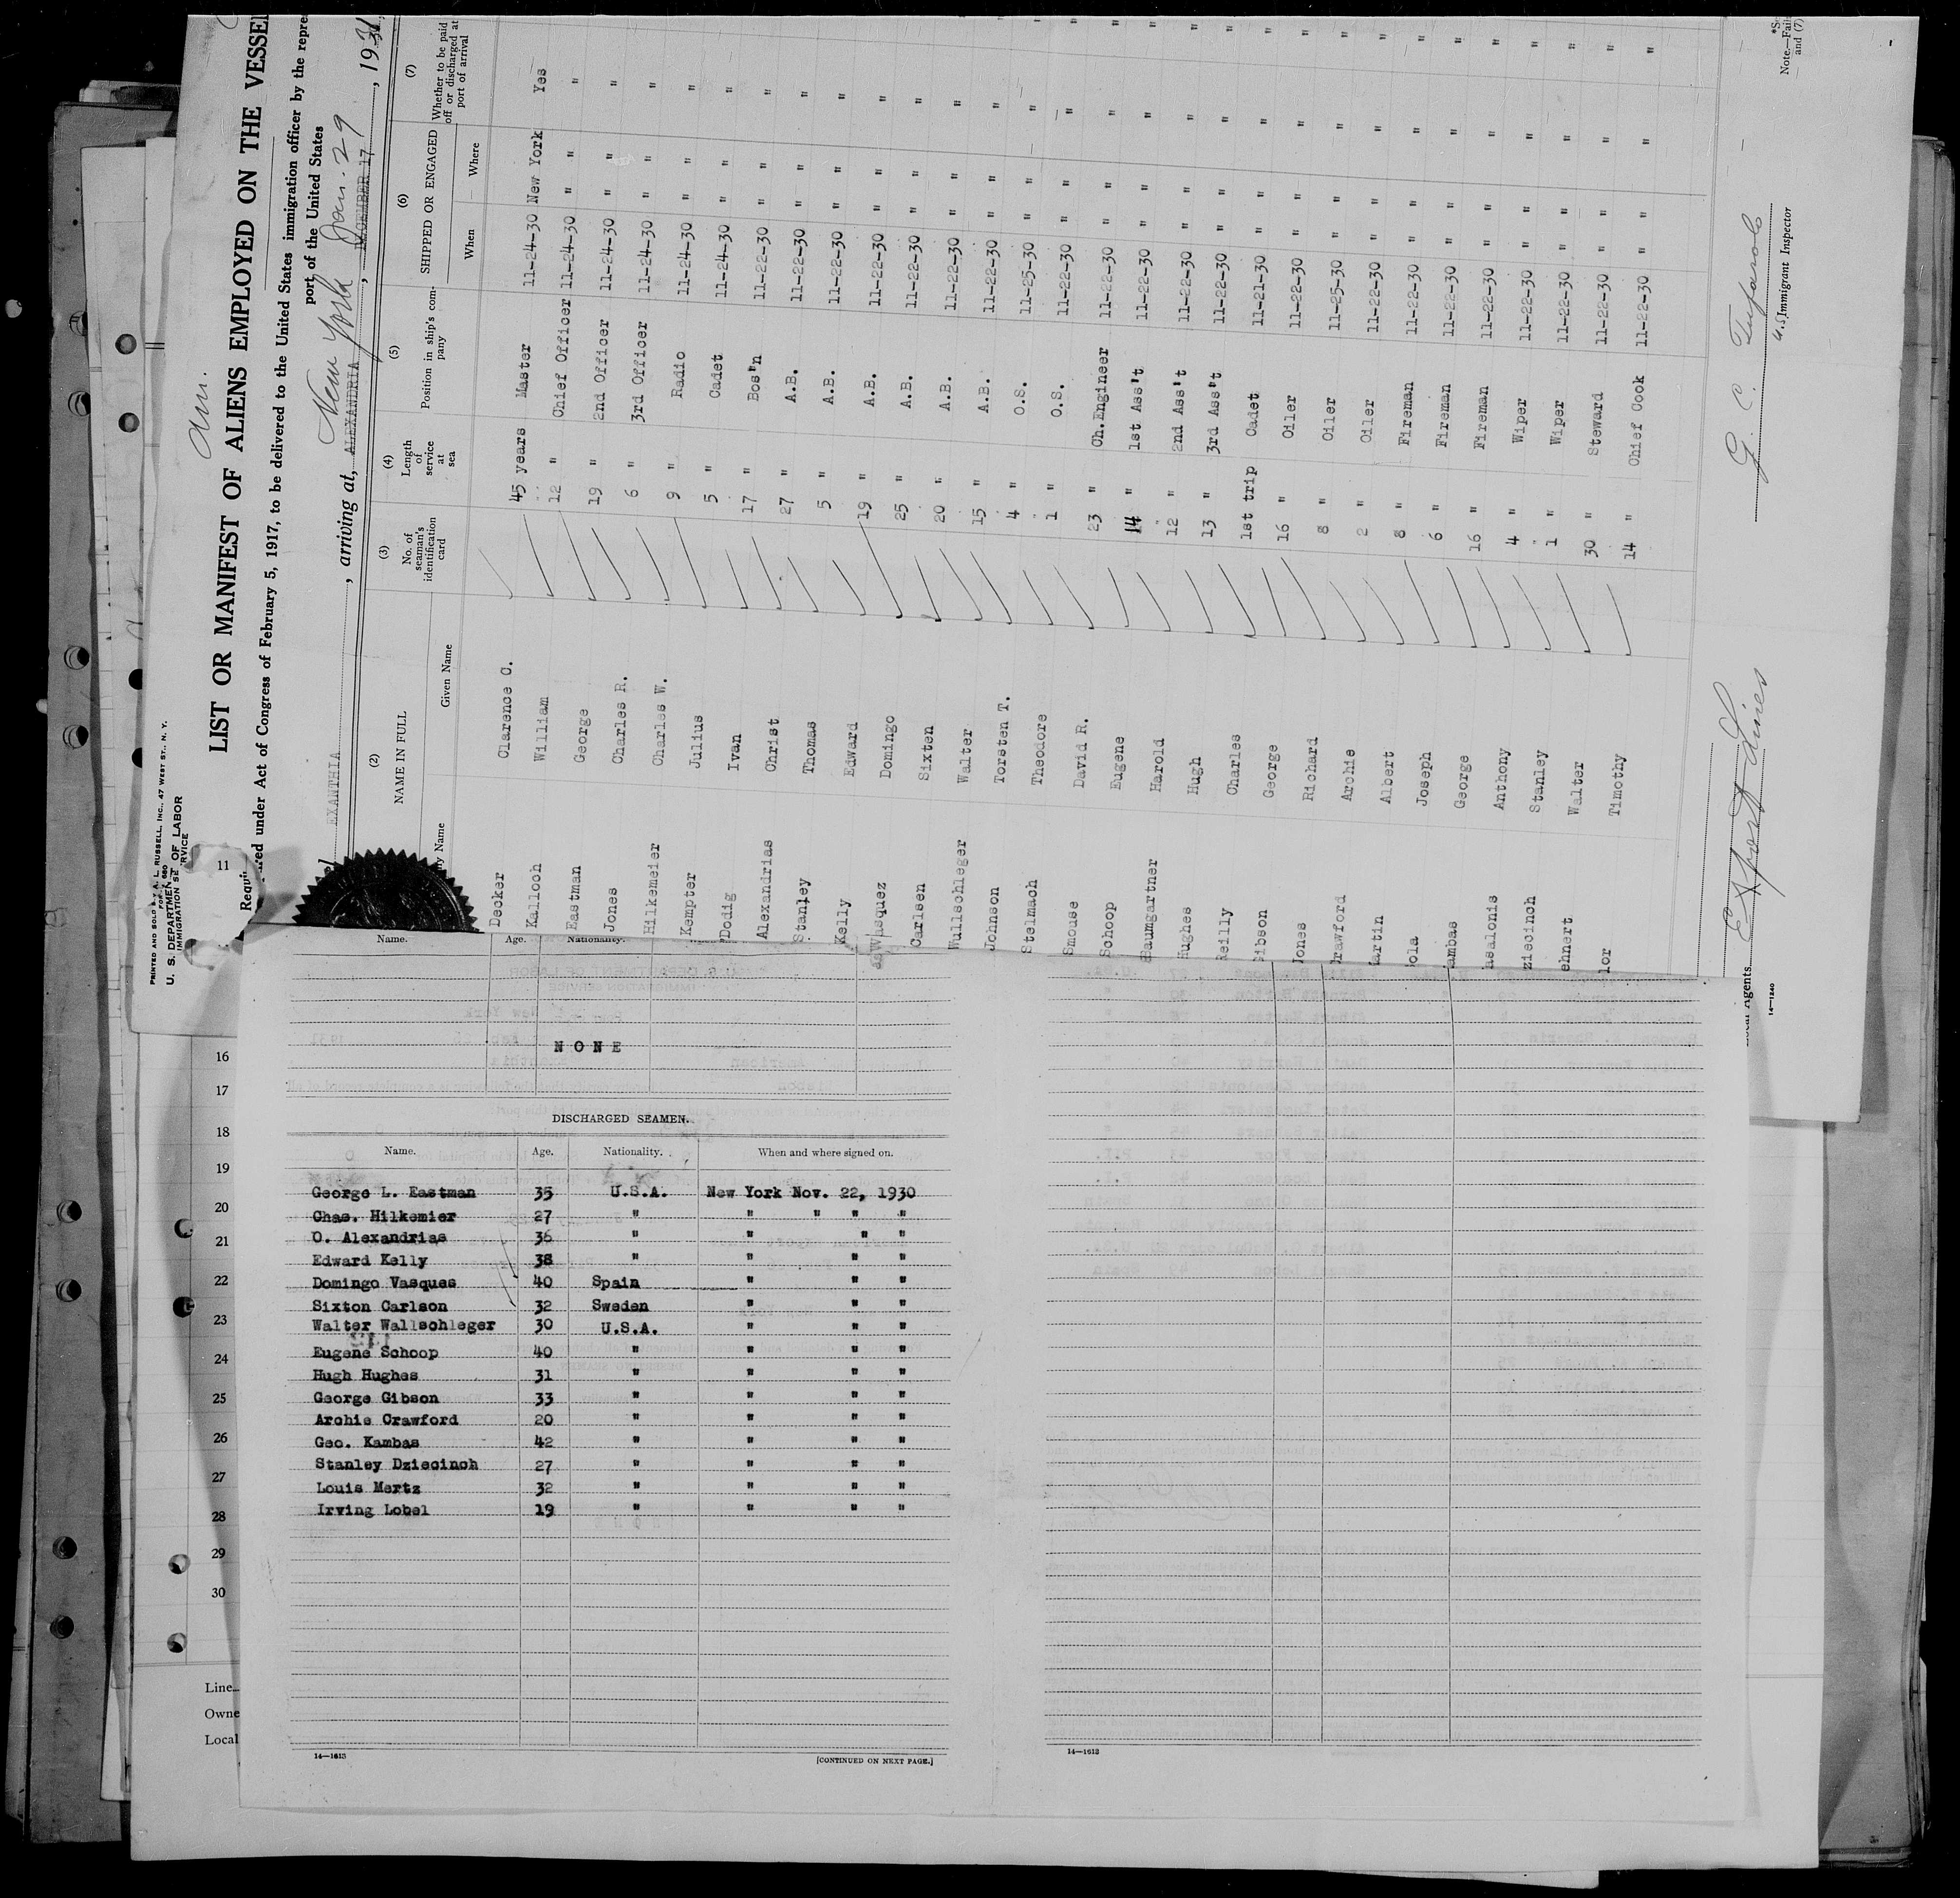 Am.
PRINTED AND SOLD BY A. L. RUSSELL, INC., 47 WEST ST., N. Y.
U. S. DEPARTMENT OF LABOR
IMMIGRATION SERVICE
LIST OR MANIFEST OF ALIENS EMPLOYED ON THE VESSEL
Required under Act of Congress of February 5, 1917, to be delivered to the United States immigration officer by the repre
port of the United States
EXANTHIA, arriving at, ALEXANDRIA New York, DECEMBER 17 Jan. 29, 1931
(2) (3) (4) (5) (6) (7)
NAME IN FULL No. of seaman's identification card Length of service at sea Position in ship's company SHIPPED OR ENGAGED Whether to be paid off or discharged at port of arrival
Given Name When Where
Decker Clarence O. 45 years Master 11-24-30 New York Yes
Kalloch William 12 " Chief Officer 11-24-30 " " "
Eastman George 19 " 2nd Officer 11-24-30 " " "
Jones Charles R. 6 " 3rd Officer 11-24-30 " " "
Hilkemeier Charles W. 9 " Radio 11-24-30 " " "
Kempter Julius 5 " Cadet 11-24-30 " " "
Dodig Ivan 17 " Bos'n 11-22-30 " " "
Alexandrias Christ 27 " A.B. 11-22-30 " " "
Stanley Thomas 5 " A.B. 11-22-30 " " "
Kelly Edward 19 " A.B. 11-22-30 " " "
Vasquez Domingo 25 " A.B. 11-22-30 " " "
Carlsen Sixten 20 " A.B. 11-22-30 " " "
Wullschleger Walter 15 " A.B. 11-22-30 " " "
Johnson Torsten T. 4 " O.S. 11-25-30 " " "
Stelmach Theodore 1 " O.S. 11-22-30 " " "
Smouse David R. 23 " Ch.Engineer 11-22-30 " " "
Schoop Eugene 14 " 1st Ass't 11-22-30 " " "
Baumgartner Harold 12 " 2nd Ass't 11-22-30 " " "
Hughes Hugh 13 " 3rd Ass't 11-22-30 " " "
Reilly Charles 1st trip Cadet 11-21-30 " " "
ibson George 16 " Oiler 11-22-30 " " "
Jones Richard 8 " Oiler 11-25-30 " " "
rawford Archie 2 " Oiler 11-22-30 " " "
artin Albert 8 " Fireman 11-22-30 " " "
ola Joseph 6 " Fireman 11-22-30 " " "
ambas George 16 " Fireman 11-22-30 " " "
asalonis Anthony 4 " Wiper 11-22-30 " " "
ziecinch Stanley 1 " Wiper 11-22-30 " " "
ehnert Walter 30 " Steward 11-22-30 " " "
lor Timothy 14 " Chief Cook 11-22-30 " " "
Export Lines
Agents
14—1240
Immigrant Inspector
Note.—Fai
and (7)
11
Name. Age. Nationality.
NONE
DISCHARGED SEAMEN.
Name. Age. Nationality. When and where signed on.
George L. Eastman 35 U.S.A. New York Nov. 22, 1930
Chas. Hilkemier 27 " " " " "
O. Alexandrias 36 " " " "
Edward Kelly 38 " " " "
Domingo Vasques 40 Spain " " "
Sixton Carlson 32 Sweden " " "
Walter Wallschleger 30 U.S.A. " " "
Eugene Schoop 40 " " " "
Hugh Hughes 31 " " " "
George Gibson 33 " " " "
Archie Crawford 20 " " " "
Geo. Kambas 42 " " " "
Stanley Dziecinch 27 " " " "
Louis Mertz 32 " " " "
Irving Lobel 19 " " " "
14—1613 [CONTINUED ON NEXT PAGE.]
14—1613
16
17
18
19
20
21
22
23
24
25
26
27
28
29
30
Line
Owne
Local